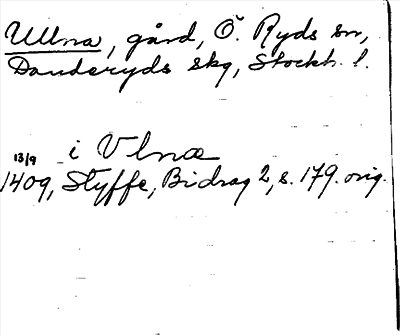 Ullna, gård, Ö. Ryds sn,
Danderyds skg, Stockh. l.
i Vlnæ
13/9
1409, Styffe, Bidrag 2, s. 179. orig.